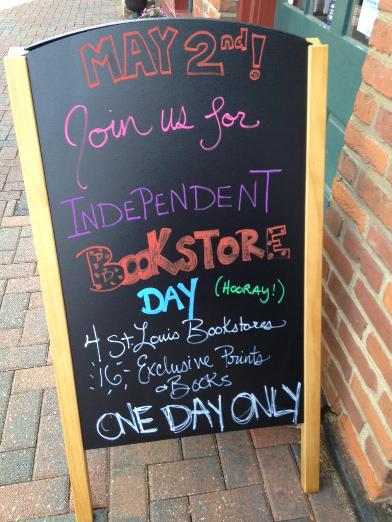 MAY 2nd!
Join us for
INDEPENDENT
BOOKSTORE
DAY (HOORAY!)
4 St. Louis Bookstores
16 Exclusive Prints
& Books
ONE DAY ONLY